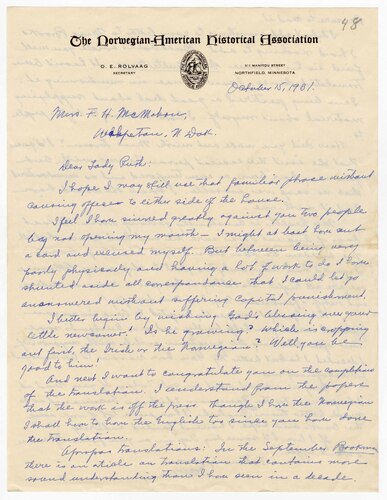 48
The Norwegian-American Historical Association
O. E. ROLVAAG
SECRETARY
311 MANITOU STREET
NORTHFIELD, MINNESOTA
October 15, 1931.
Mrs. F. H. McMahon,
Wahpeton, N Dak.
Dear Lady Ruth:
I hope I may still use that familiar phrase without
causing offense to either side of the house.
I feel I have sinned greatly against you two people
by not opening my mouth – I might at least have sent
a card and excused myself. But between being very
poorly physically and having a lot of work to do I have
shunted aside all correspondence that I could let go
unanswered without suffering capital punishment.
I better begin by wishing God's blessing on your
little newcomer! Is he growing? Which is cropping
out first, the Irish or the Norwegian? Well you be
good to him.
And next I want to congratulate you on the completion
of the translation. I understand from the papers
that the work is off the press. Though I have the Norwegian
I shall have to have the English too since you have done
the translation.
Apropos translations: In the September Bookman
there is an article on translation that contains more
sound understanding than I have seen in a decade.